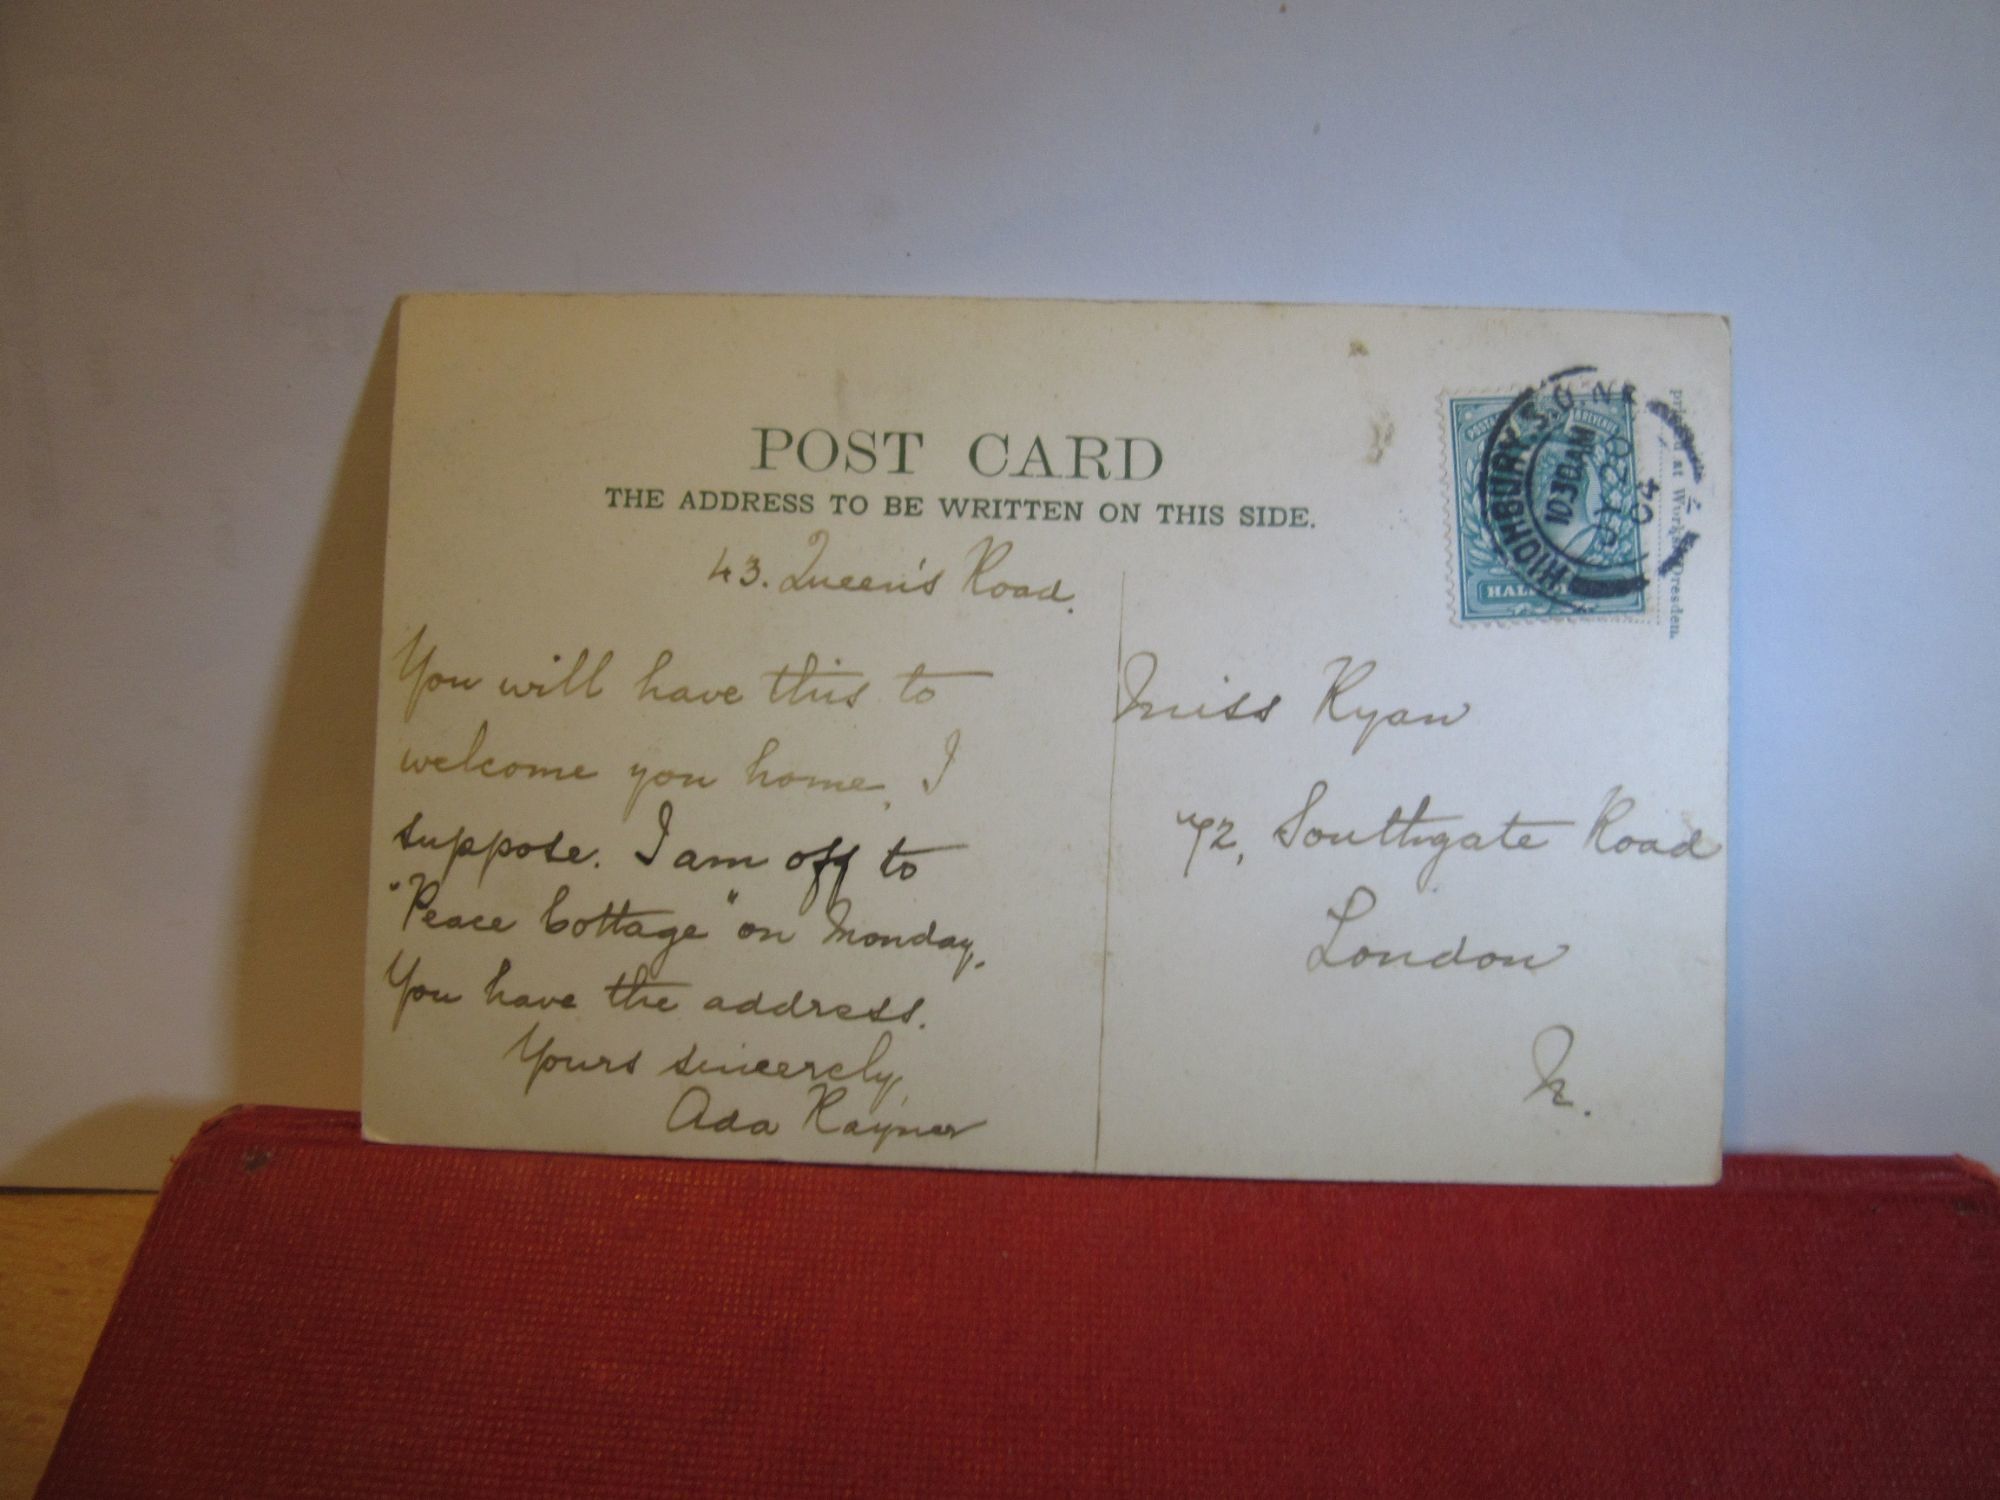 POST CARD
THE ADDRESS TO BE WRITTEN ON THIS SIDE.
43. Queen's Road.
You will have this to
welcome you home, I
suppose. I am off to
"Peace Cottage" on Monday.
You have the address.
Yours sincerely,
Ada Rayner
Miss Ryan
72, Southgate Road
London
N.
HIGHBURY. S.O. N
1030AM
JY 20
04
printed at Works Dresden.